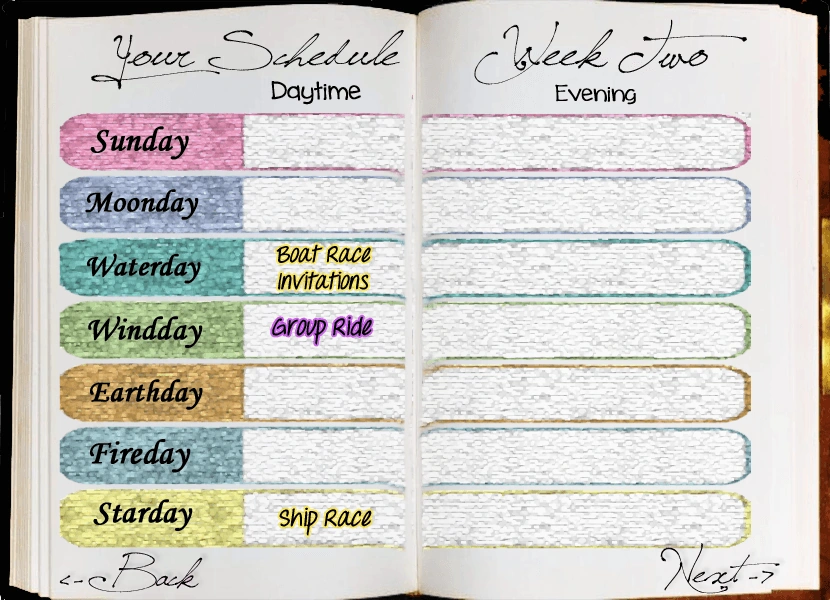 Your Schedule
Week Two
Daytime
Evening
Sunday
Moonday
Waterday
Boat Race
Invitations
Windday
Group Ride
Earthday
Fireday
Starday
Ship Race
<-- Back
Next -->